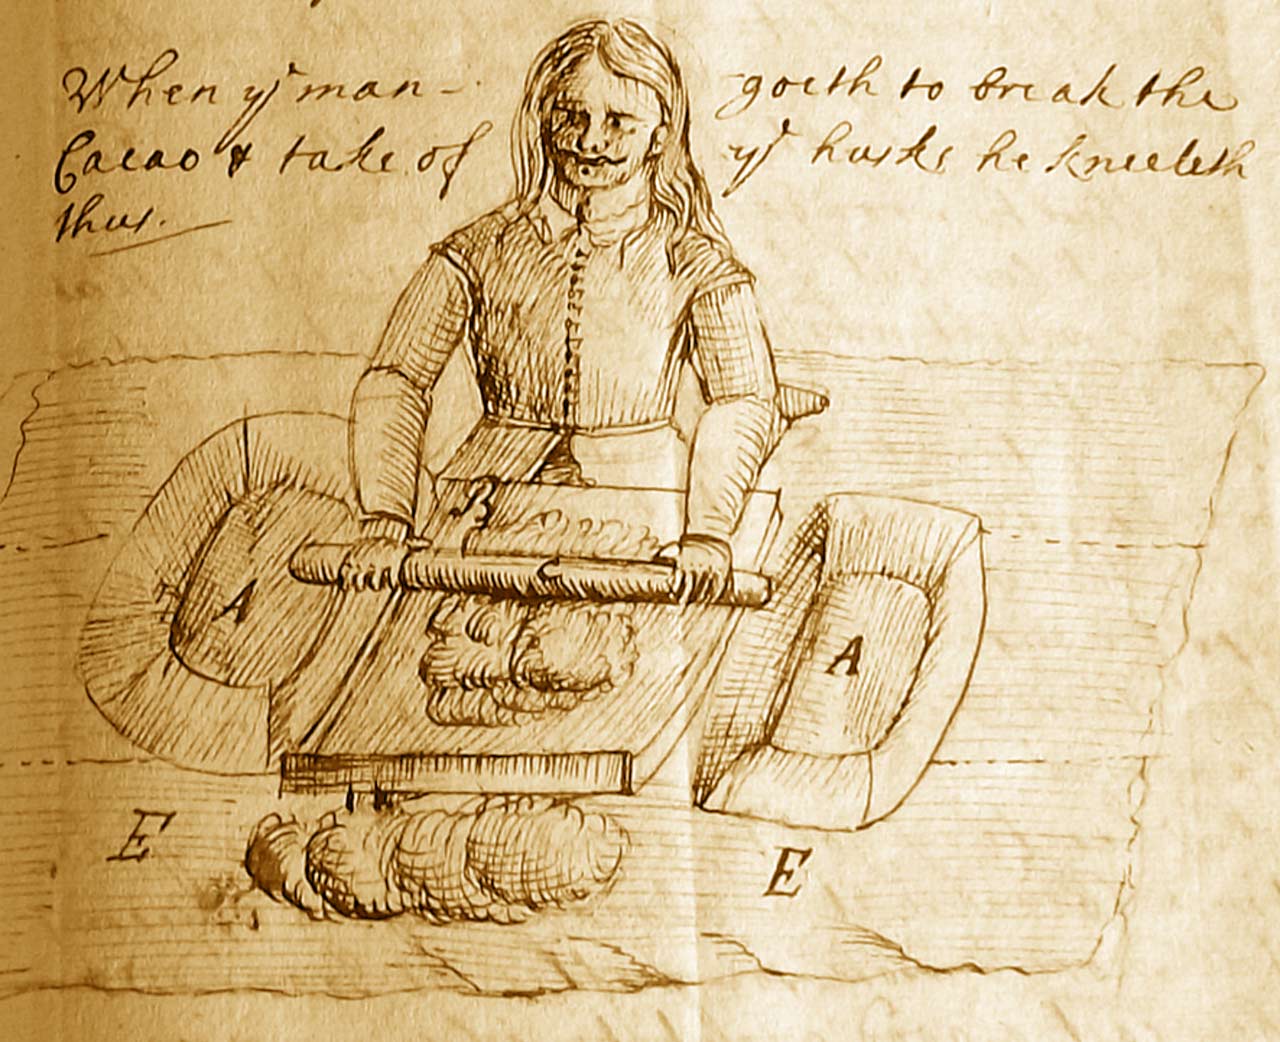 When yͤ man - goeth to break the
Cacao & take of yͤ huske he kneeleth
thus.
B
A
A
E
E